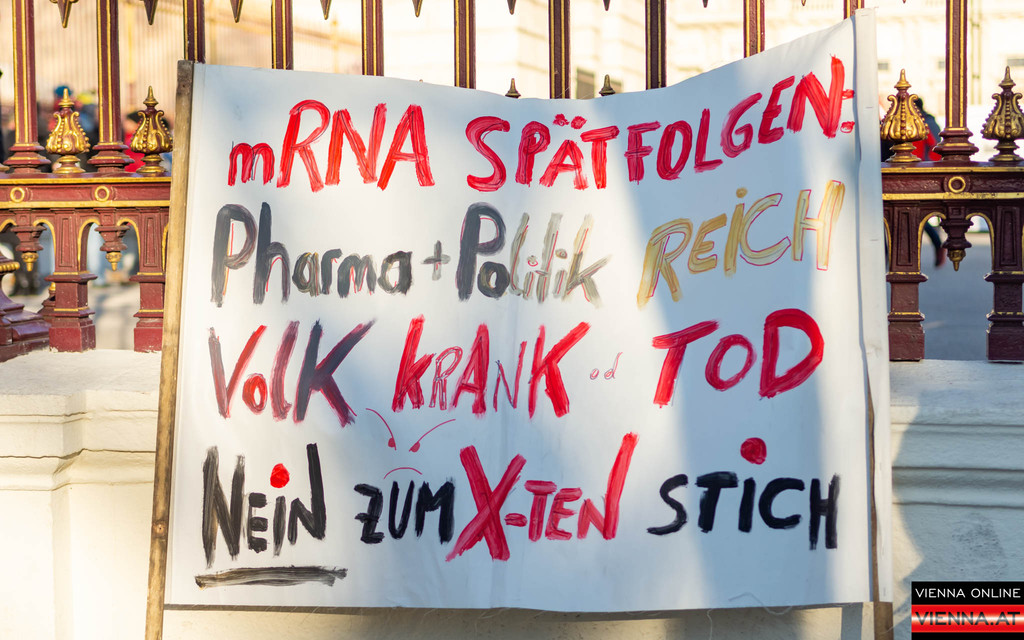 mRNA SPÄTFOLGEN:
Pharma + Politik REiCH
VolK KRANK od TOD
NEiN ZUM X-TEN STiCH
VIENNA ONLINE
VIENNA.AT